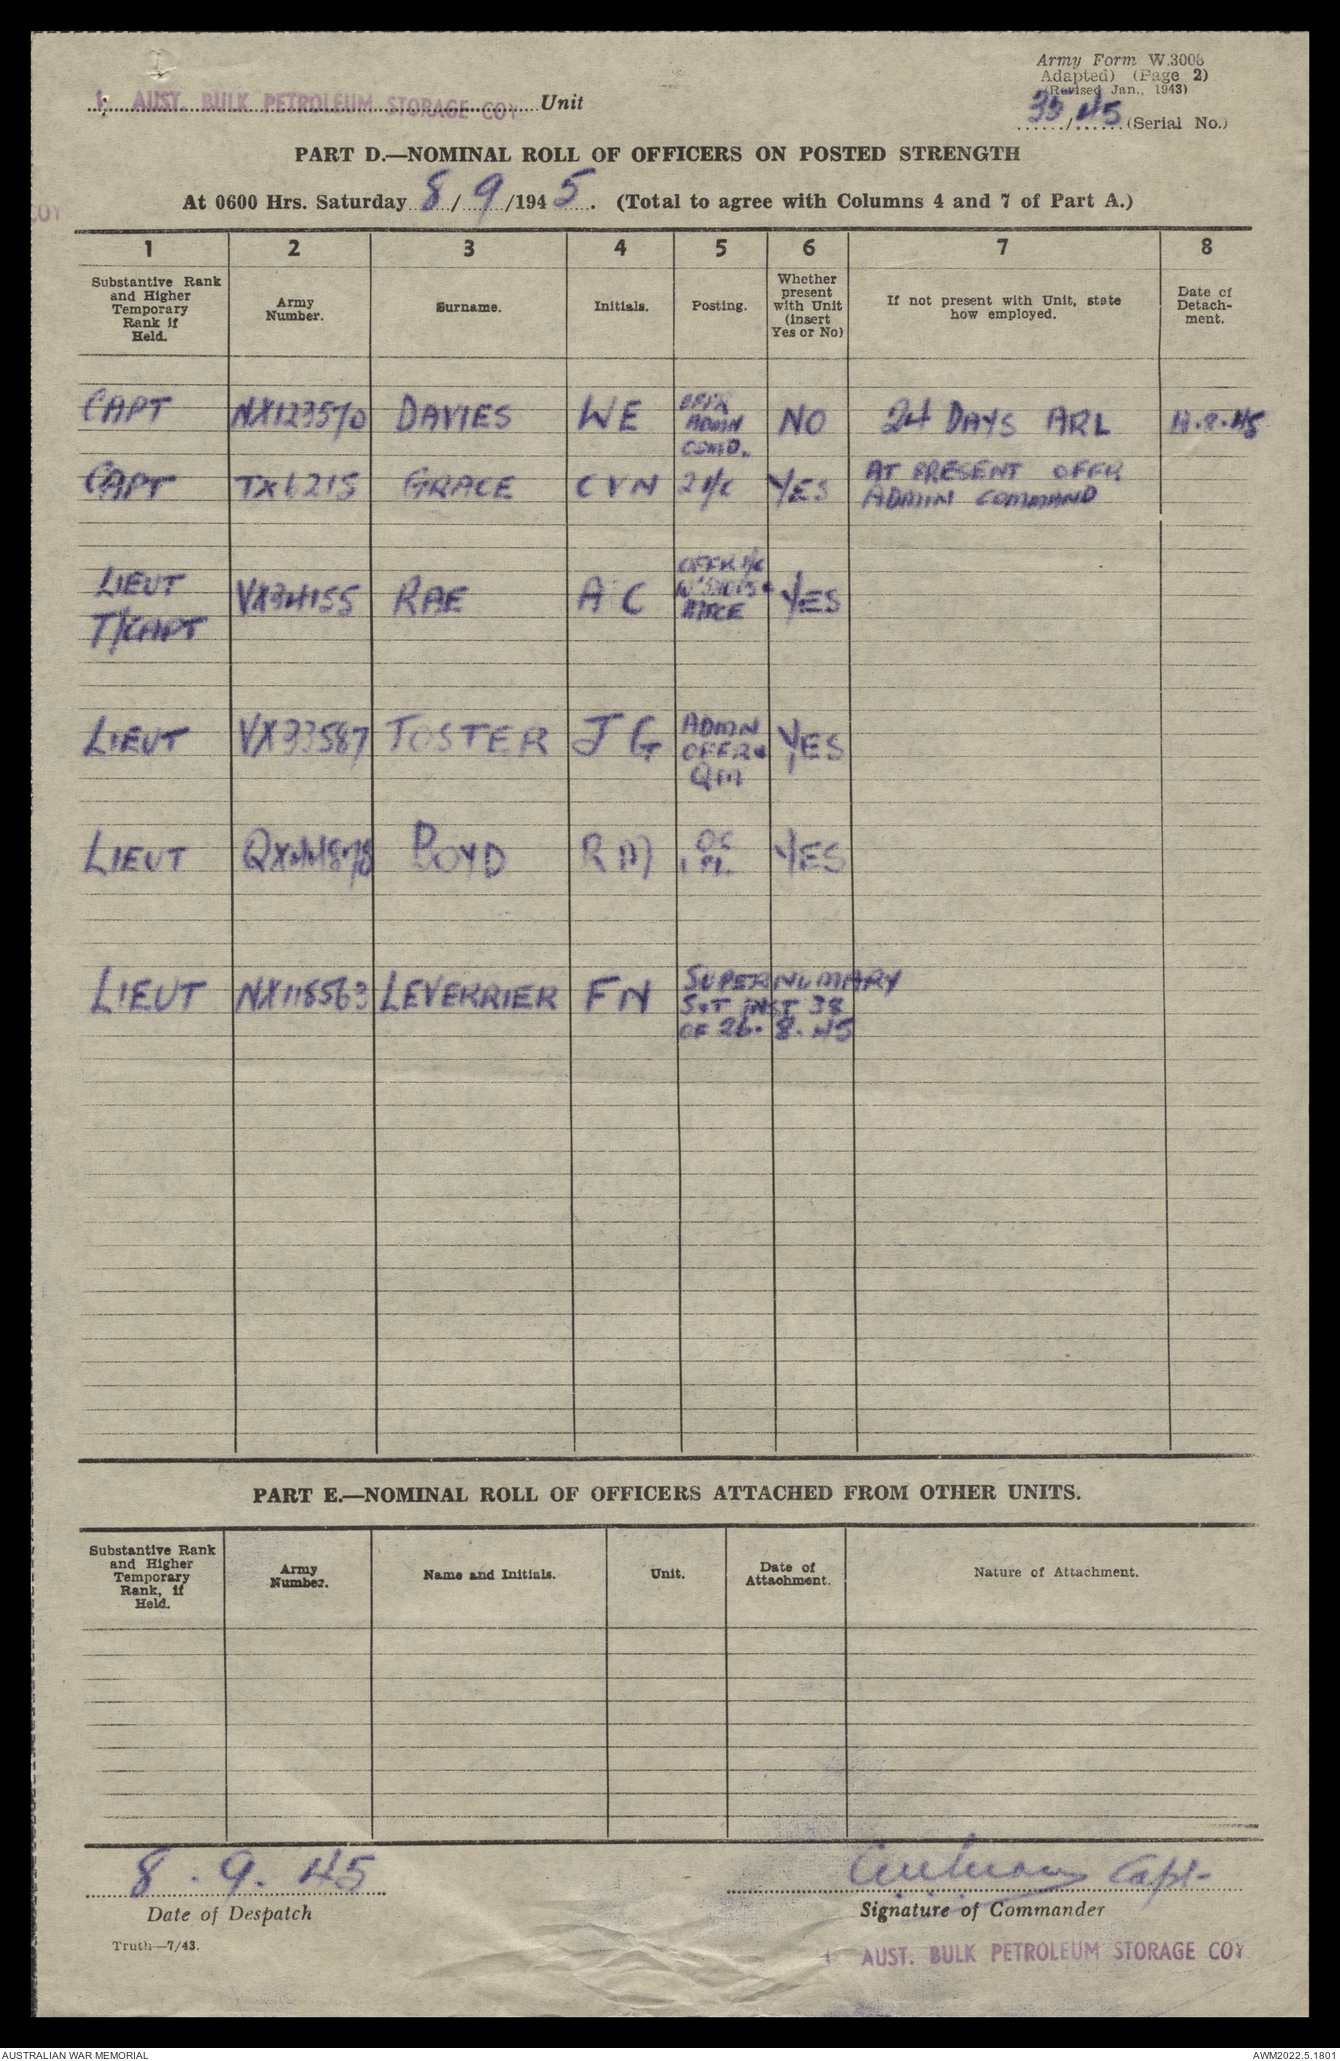 Army Form W.3008
Adapted) (Page 2)
(Revised Jan., 1943)
1 AUST. BULK PETROLEUM STORAGE COY Unit
/45 (Serial No.)
PART D.—NOMINAL ROLL OF OFFICERS ON POSTED STRENGTH
At 0600 Hrs. Saturday 8/9/1945. (Total to agree with Columns 4 and 7 of Part A.)
COY
1 2 3 4 5 6 7 8
Substantive Rank and Higher Temporary Rank if Held.
Army Number.
Surname.
Initials.
Posting.
Whether present with Unit (insert Yes or No)
If not present with Unit, state how employed.
Date of Detach-ment.
CAPT NX123570 DAVIES WE OFFR ADMN COMD. NO 24 DAYS ARL .8.45
CAPT TX6215 GRACE CVN 2 I/C YES AT PRESENT OFFR ADMIN COMMAND
LIEUT T/CAPT VX34155 RAE A C OFFR I/C YES
LIEUT VX33587 TOSTER J G ADMN OFFR & QM YES
LIEUT BOYD R M OC 1 PL. YES
LIEUT NX118563 LEVERRIER F N SUPERNUMARY
INST 38
OF 26.8.45
PART E.—NOMINAL ROLL OF OFFICERS ATTACHED FROM OTHER UNITS.
Substantive Rank and Higher Temporary Rank, if Held.
Army Number.
Name and Initials.
Unit.
Date of Attachment.
Nature of Attachment.
8.9.45
Capt.
Date of Despatch
Signature of Commander
Truth—7/43.
1 AUST. BULK PETROLEUM STORAGE COY
AUSTRALIAN WAR MEMORIAL
AWM2022.5.1801